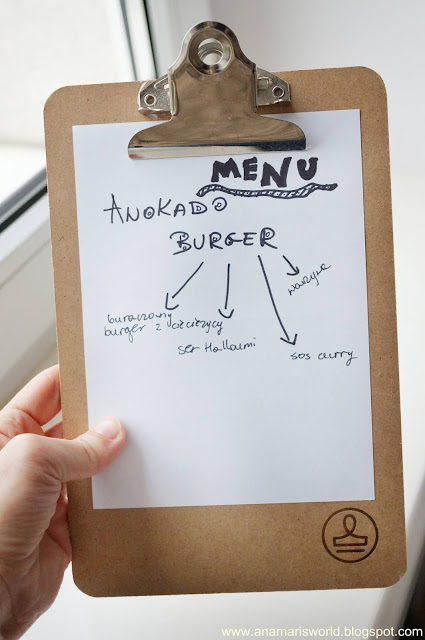 MENU
ANOKADO
BURGER
buraczany
burger z ciecierzycy
ser Halloumi
sos curry
warzywa
www.anamarisworld.blogspot.com